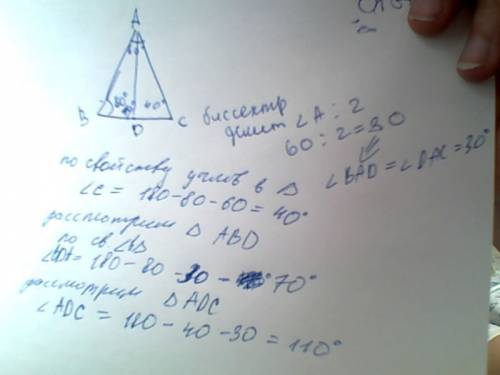 A
60°
80°
40°
B
D
C
биссектр
делит ∠A : 2
60 : 2 = 30
∠BAD = ∠DAC = 30°
по свойству углов в △
∠C = 180 - 80 - 60 = 40°
рассмотрим △ ABD
по св. ∠ △
∠BDA = 180 - 80 - 30 - 70°
рассмотрим △ ADC
∠ADC = 180 - 40 - 30 = 110°